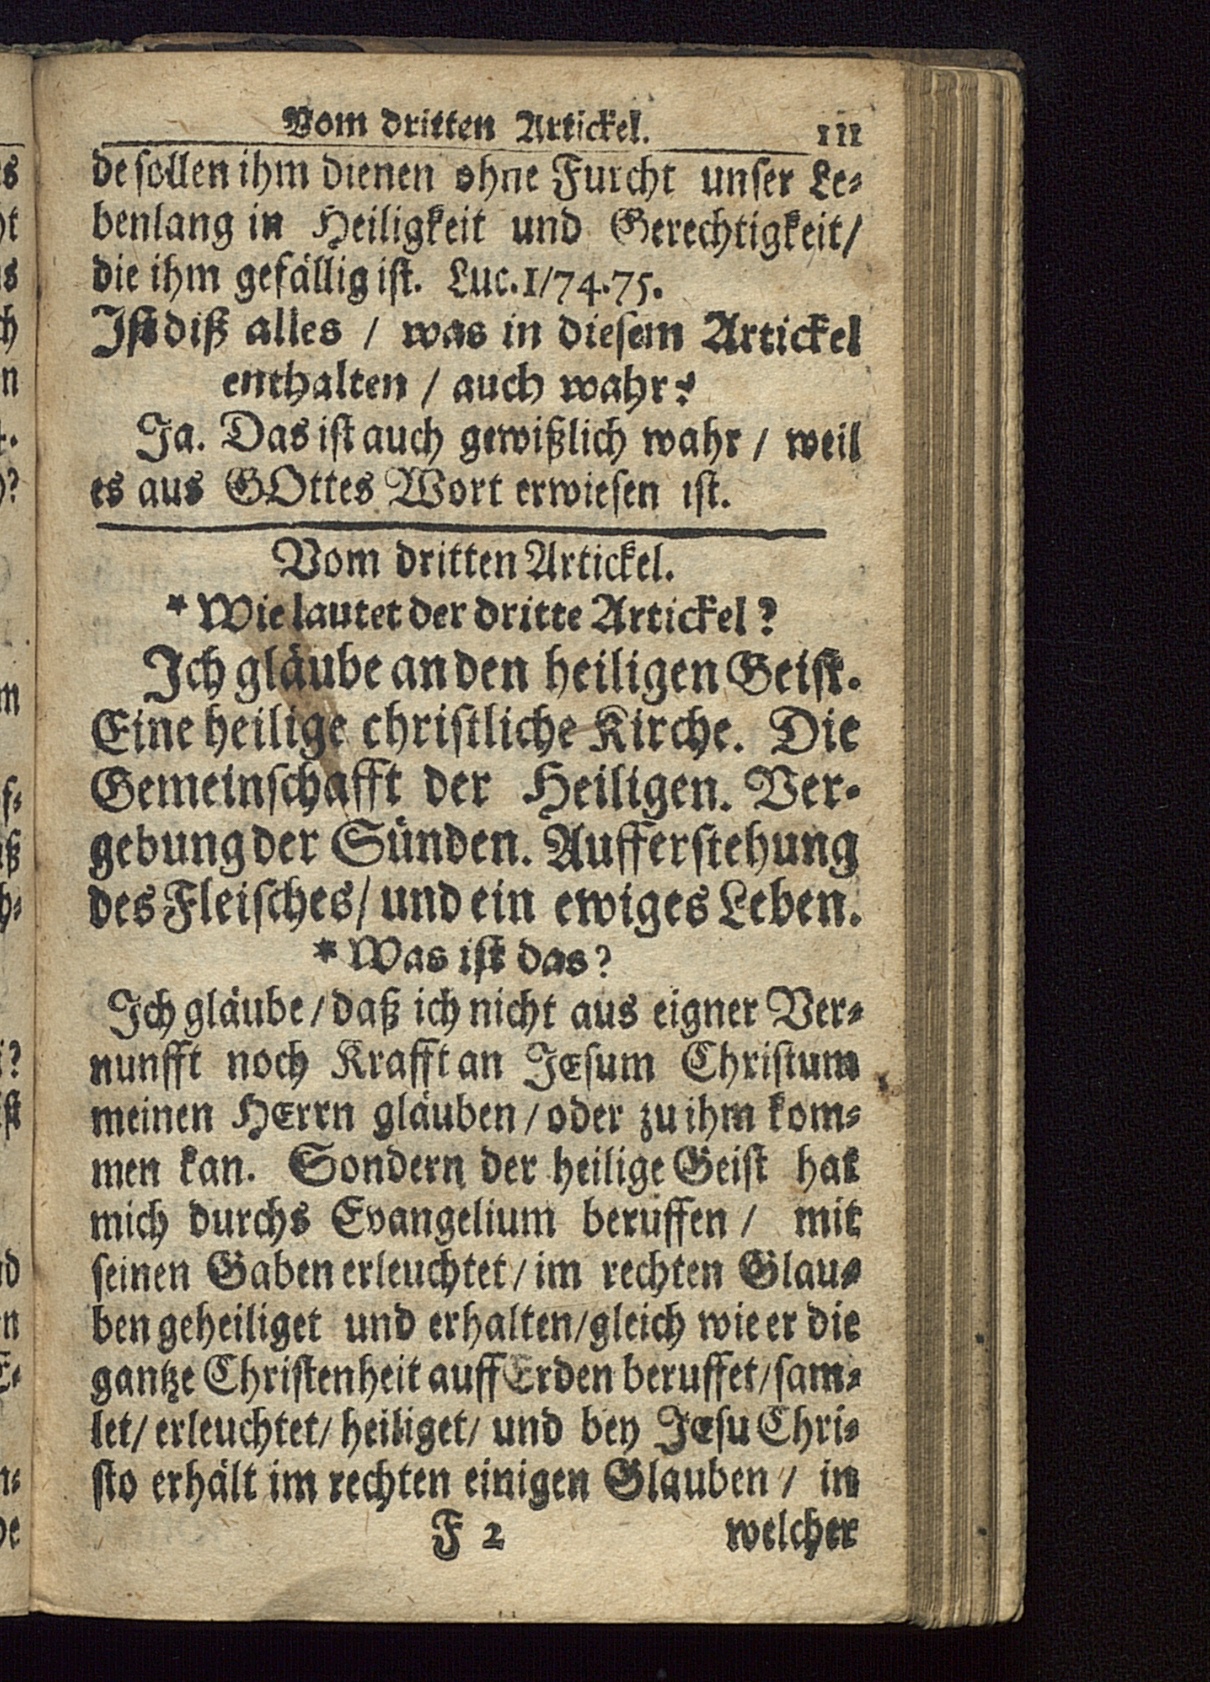 Vom dritten Artickel. 111
de sollen ihm dienen ohne Furcht unser Le-
benlang in Heiligkeit und Gerechtigkeit/
die ihm gefällig ist. Luc. 1/74.75.
Ist diß alles / was in diesem Artickel
enthalten / auch wahr?
Ja. Das ist auch gewißlich wahr / weil
es aus GOttes Wort erwiesen ist.
Vom dritten Artickel.
* Wie lautet der dritte Artickel?
Ich gläube an den heiligen Geist.
Eine heilige christliche Kirche. Die
Gemeinschafft der Heiligen. Ver-
gebung der Sünden. Aufferstehung
des Fleisches/ und ein ewiges Leben.
* Was ist das?
Ich gläube/ daß ich nicht aus eigner Ver-
nunfft noch Krafft an JEsum Christum
meinen HErrn gläuben/ oder zu ihm kom-
men kan. Sondern der heilige Geist hat
mich durchs Evangelium beruffen / mit
seinen Gaben erleuchtet/ im rechten Glau-
ben geheiliget und erhalten/ gleich wie er die
gantze Christenheit auff Erden beruffet/ sam-
let/ erleuchtet/ heiliget/ und bey JEsu Chri-
sto erhält im rechten einigen Glauben / in
F 2 welcher